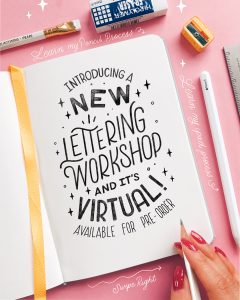 Learn my Pencil Process
INTRODUCING A
NEW
LETTERING
WORKSHOP
AND IT'S
VIRTUAL!
AVAILABLE FOR PRE-ORDER
Learn my ipad process
Swipe Right